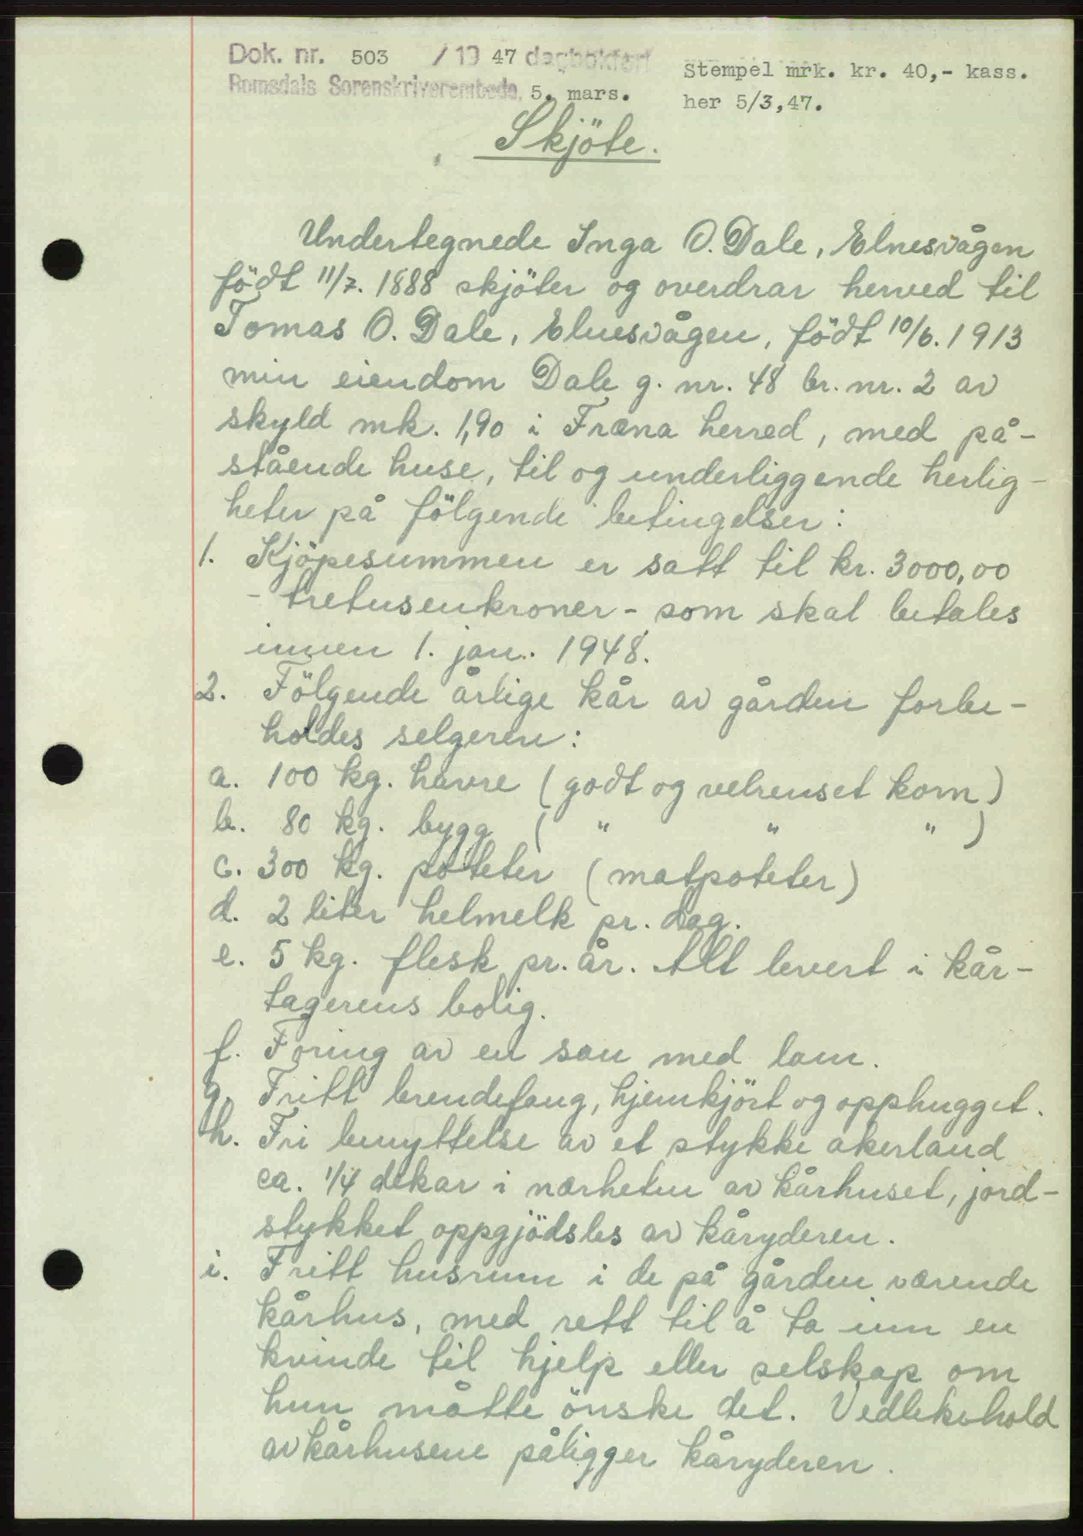 Dok. nr. 503 / 19 47 dagbokført
Stempel mrk. kr. 40,- kass.
Romsdals Sorenskriverembede. 5. mars.
her 5/3,47.
Skjöte.
Undertegnede Inga O. Dale, Elnesvågen
födt 11/7. 1888 skjöter og overdrar herved til
Tomas O. Dale, Elnesvågen, födt 10/6. 1913
min eiendom Dale g. nr. 48 br. nr. 2 av
skyld mk. 1,90 i Fræna herred, med på-
stående huse, til og underliggende herlig-
heter på fölgende betingelser:
1. Kjöpesummen er satt til kr. 3000,00
- tretusenkroner - som skal betales
innen 1. jan. 1948.
2. Fölgende årlige kår av gården forbe-
holdes selgeren:
a. 100 kg. havre (godt og velrenset korn)
b. 80 kg. bygg ( " " " )
c. 300 kg. poteter (matpoteter)
d. 2 liter helmelk pr. dag.
e. 5 kg. flesk pr. år. Alt levert i kår-
tagerens bolig.
f. Foring av en sau med lam.
g. Fritt brendefang, hjemkjört og opphugget.
h. Fri benyttelse av et stykke akerland
ca. 1/4 dekar i nærheten av kårhuset, jord-
stykket oppgjödsles av kåryderen.
i. Fritt husrum i de på gården værende
kårhus, med rett til å ta inn en
kvinde til hjelp eller selskap om
hun måtte önske det. Vedlikehold
av kårhusene påligger kåryderen.